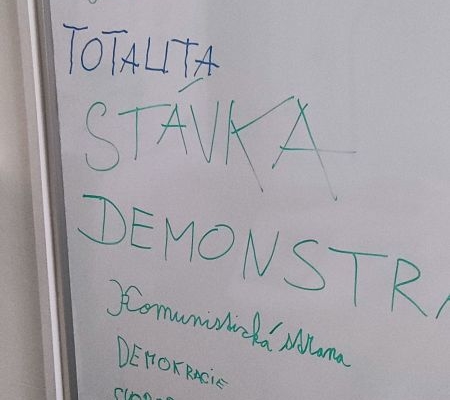 TOTALITA
STÁVKA
DEMONSTRA
Komunistická strana
DEMOKRACIE